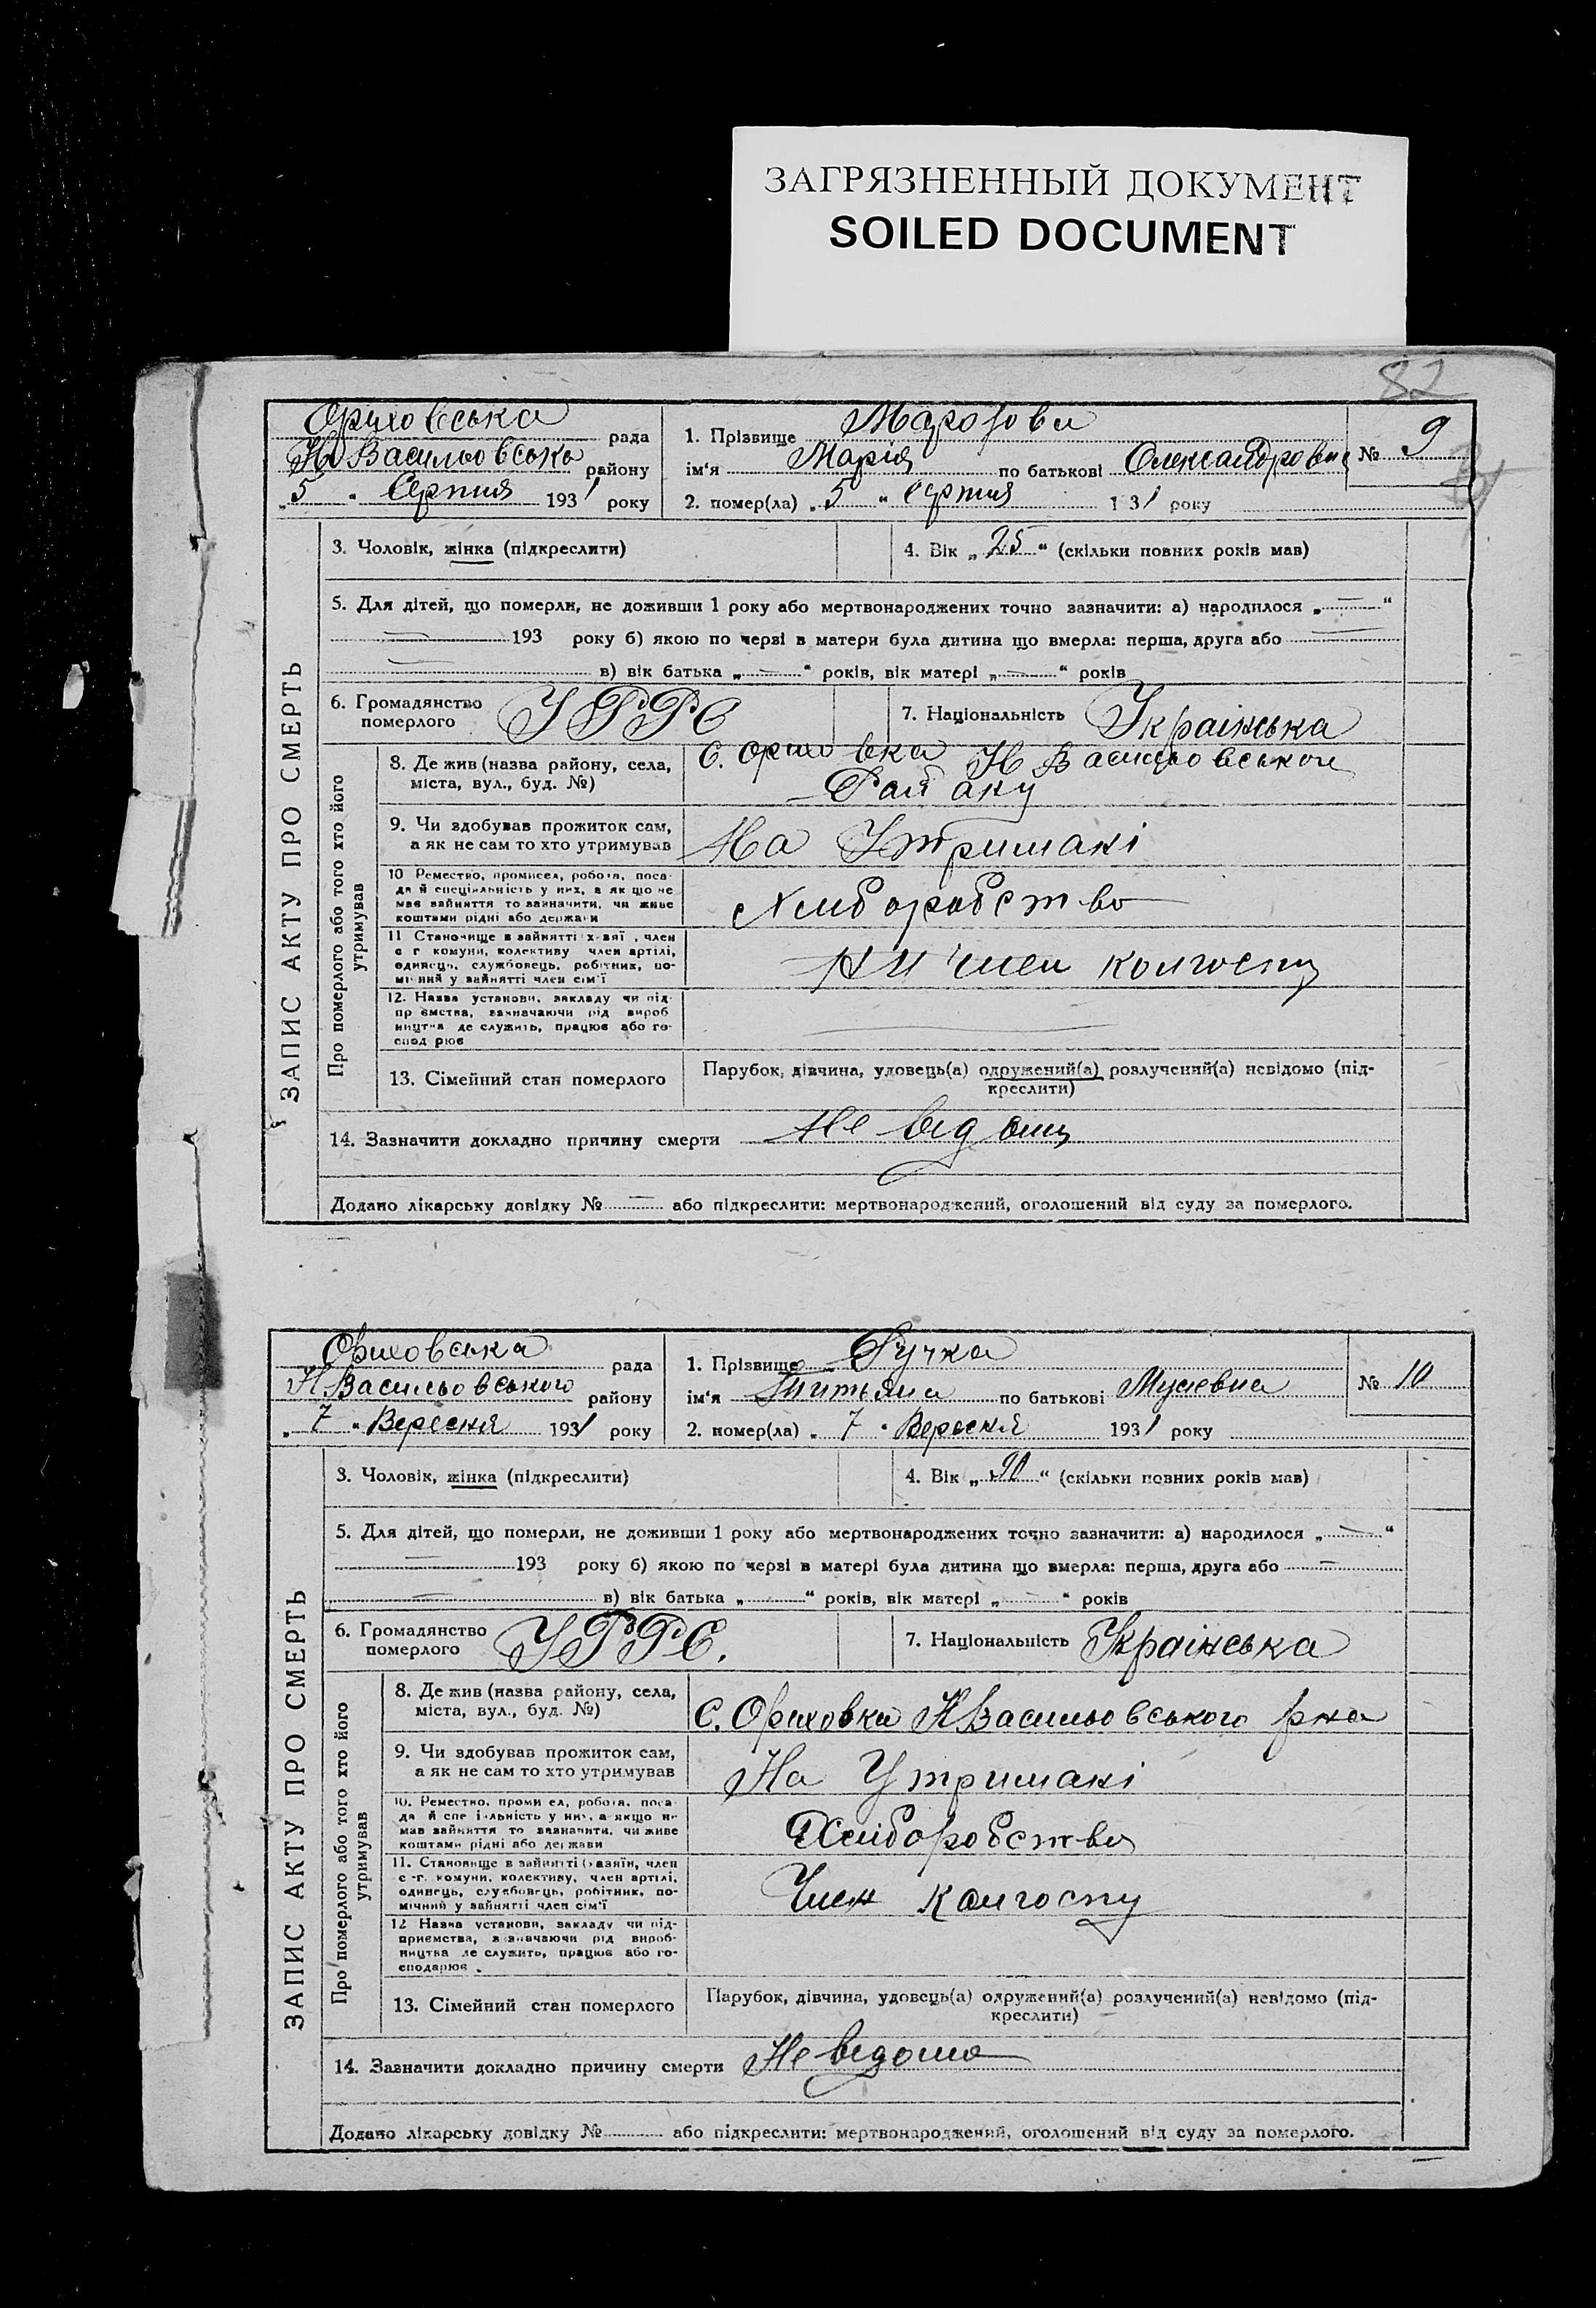 ЗАГРЯЗНЕННЫЙ ДОКУМЕНТ
SOILED DOCUMENT
82
Ориховська рада
Н Васильовсько району
„ 5 " Серпня 1931 року
1. Прізвище Марозова
ім'я Марія по батькові Олександровна
№ 9
2. помер(ла) „ 5 " серпня 1 31 року
ЗАПИС АКТУ ПРО СМЕРТЬ
3. Чоловік, жінка (підкреслити)
4. Вік „ 25 " (скільки повних років мав)
5. Для дітей, що померли, не доживши 1 року або мертвонароджених точно зазначити: а) народилося „ — "
— 193 року б) якою по черзі в матери була дитина що вмерла: перша, друга або —
— в) вік батька „ — " років, вік матері „ — " років
6. Громадянство померлого УРРС
7. Національність Українська
Про померлого або того хто його утримував
8. Де жив (назва району, села,
міста, вул., буд. №)
С. Ориховка Н Васильовського
Району
9. Чи здобував прожиток сам,
а як не сам то хто утримував
На Утримані
10 Ремество, промисел, робота, поса-
да й спеціяльність у них, а як що не
мав зайняття то зазначити, чи живе
коштами рідні або держави
Хліборобство
11 Становище в зайнятті х-зяї , член
с г комуни, колективу член артілі,
одинець, службовець, робітник, по-
мічний у зайнятті член сім'ї
Ни член колгоспу
12. Назва установи, закладу чи під-
пр ємства, зазначаючи рід вироб
ництва де служить, працює або го-
спод рює
—
13. Сімейний стан померлого
Парубок, дівчина, удовець(а) одружений(а) розлучений(а) невідомо (під-
креслити)
14. Зазначити докладно причину смерти Не відому
Додано лікарську довідку № — або підкреслити: мертвонароджений, оголошений від суду за померлого.
Ориховська рада
Н Васильовського району
„ 7 " Вересня 1931 року
1. Прізвище Ручка
ім'я Титьяна по батькові Мусіевна
№ 10
2. помер(ла) „ 7 " Вересня 1931 року
ЗАПИС АКТУ ПРО СМЕРТЬ
3. Чоловік, жінка (підкреслити)
4. Вік „ 90 " (скільки повних років мав)
5. Для дітей, що померли, не доживши 1 року або мертвонароджених точно зазначити: а) народилося „ — "
— 193 року б) якою по черзі в матері була дитина що вмерла: перша, друга або —
— в) вік батька „ — " років, вік матері „ — " років
6. Громадянство померлого УРРС.
7. Національність Українська
Про померлого або того хто його утримував
8. Де жив (назва району, села,
міста, вул., буд. №)
С. Ориховка Н Васильовського рна
9. Чи здобував прожиток сам,
а як не сам то хто утримував
На Утримані
10. Ремество, проми ел, робота, поса-
да й спе і льність у них, а якщо не
мав зайняття то зазначити, чи живе
коштами рідні або держави
Хліборобство
11. Становище в зайнятті (хазяїн, член
с -г. комуни, колективу, член артілі,
одинець, службовець, робітник, по-
мічний у зайнятті член сім'ї
Член колгоспу
12 Назва установи, закладу чи під-
приємства, зазначаючи рід вироб-
ництва де служить, працює або го-
сподарює .
13. Сімейний стан померлого
Парубок, дівчина, удовець(а) одружений(а) розлучений(а) невідомо (під-
креслити)
14. Зазначити докладно причину смерти Не відомо
Додано лікарську довідку № або підкреслити: мертвонароджений, оголошений від суду за померлого.